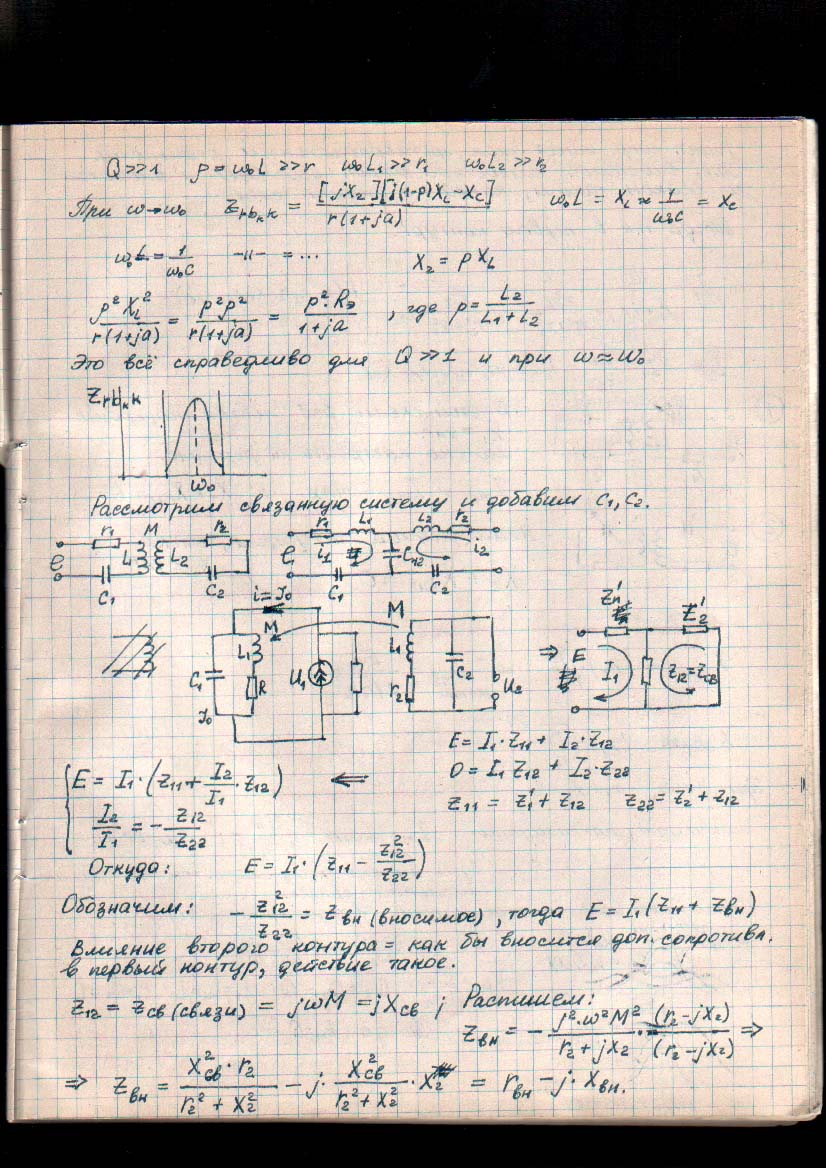 Q>>1 ρ=ω₀L>>r ω₀L₁>>r₁ ω₀L₂>>r₂
При ω→ω₀ Z = [jX₂][j(1-p)X_L-X_C] / r(1+ja) ω₀L = X_L ≈ 1/ω₀C = X_C
ω₀L = 1/ω₀C -"- = ... X₂ = pX_L
p²X_L²/r(1+ja) = p²ρ²/r(1+ja) = p²·Rэ/1+ja , где p = L₂/L₁+L₂
Это всё справедливо для Q>>1 и при ω≈ω₀
ω₀
Рассмотрим связанную систему и добавим C₁, C₂.
r₁ M r₂ L₁ L₂ C₁ C₂
r₁ L₁ L₂ r₂ i₁ i₂ C₁ C₂
i=I₀ M L₁ C₁ R I₀ U₁
M L₁ r₂ C₂ U₂
⇒ Z₂' E I₁ Z₁₂=Zсв
E = I₁·Z₁₁ + I₂·Z₁₂
0 = I₁ Z₁₂ + I₂·Z₂₂
Z₁₁ = Z₁' + Z₁₂ Z₂₂ = Z₂' + Z₁₂
E = I₁·(Z₁₁ + I₂/I₁ · Z₁₂) ⇐
I₂/I₁ = - Z₁₂/Z₂₂
Откуда: E = I₁·(Z₁₁ - Z₁₂²/Z₂₂)
Обозначим: - Z₁₂²/Z₂₂ = Zвн (вносимое), тогда E = I₁(Z₁₁ + Zвн)
Влияние второго контура = как бы вносится доп. сопротивл.
в первый контур, действие такое.
Z₁₂ = Zсв (связи) = jωM = jXсв ; Распишем:
Zвн = - j²·ω²M²/r₂+jX₂ · (r₂-jX₂)/(r₂-jX₂) ⇒
⇒ Zвн = Xсв²·r₂/r₂²+X₂² - j· Xсв²/r₂²+X₂² · X₂ = rвн - j·Xвн.